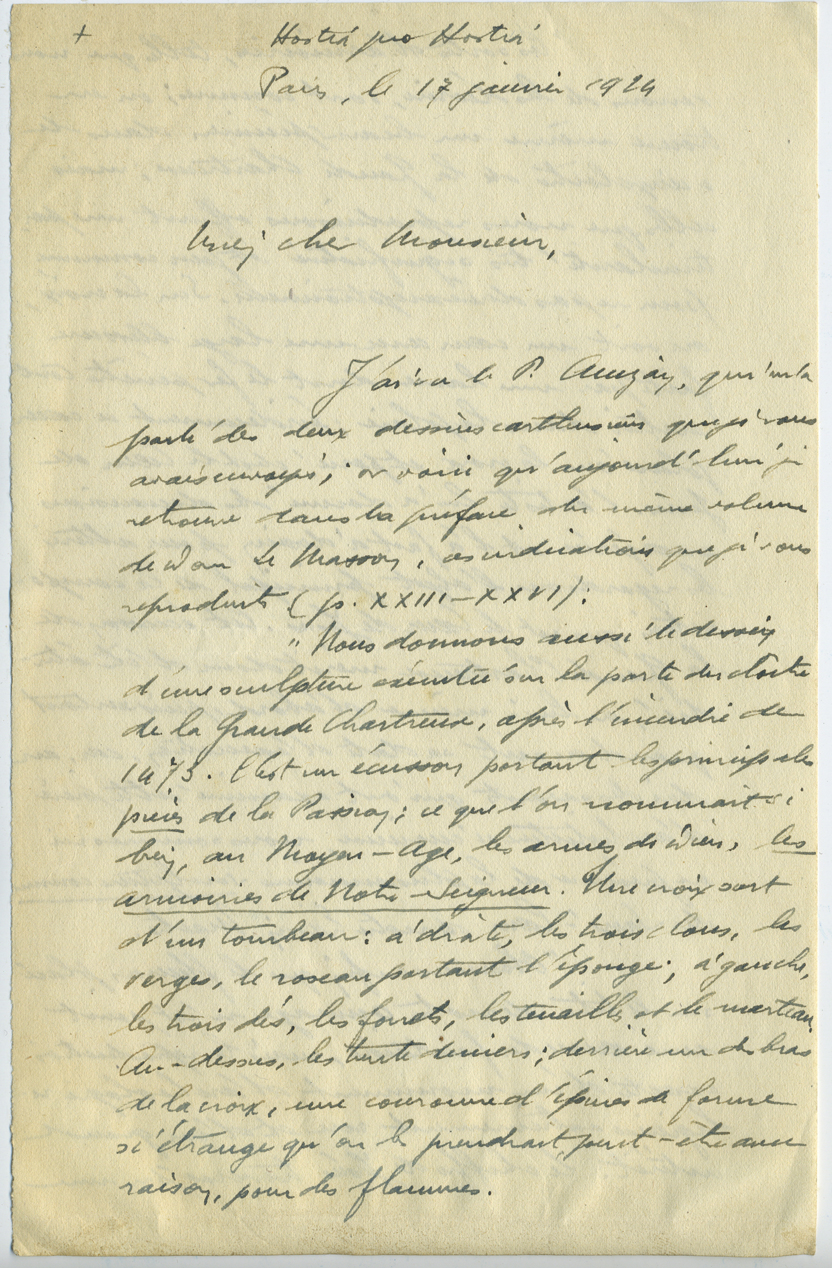 + Hostia pro Hostia
Paris, le 17 janvier 1924
Mon cher Monsieur,
J'ai vu le P. Anizan, qui m'a
parlé des deux dessins carthusiens que je vous
avais envoyés ; or voici qu'aujourd'hui je
retrouve dans la préface du même volume
de Dom Le Masson, ces indications que je vous
reproduis (p. XXIII-XXVI) :
" Nous donnons aussi le dessin
d'une sculpture exécutée sur la porte du cloître
de la Grande Chartreuse, après l'incendie de
1473. C'est un écusson portant les principales
pièces de la Passion ; ce que l'on nommait si
bien, au Moyen-Age, les armes de Dieu, les
armoiries de Notre-Seigneur. Une croix sort
d'un tombeau : à droite, les trois clous, les
verges, le roseau portant l'éponge ; à gauche,
les trois dés, les fouets, les tenailles et le marteau.
Au-dessus, les trente deniers ; derrière un des bras
de la croix, une couronne d'épines de forme
si étrange qu'on la prendrait, peut-être avec
raison, pour des flammes.